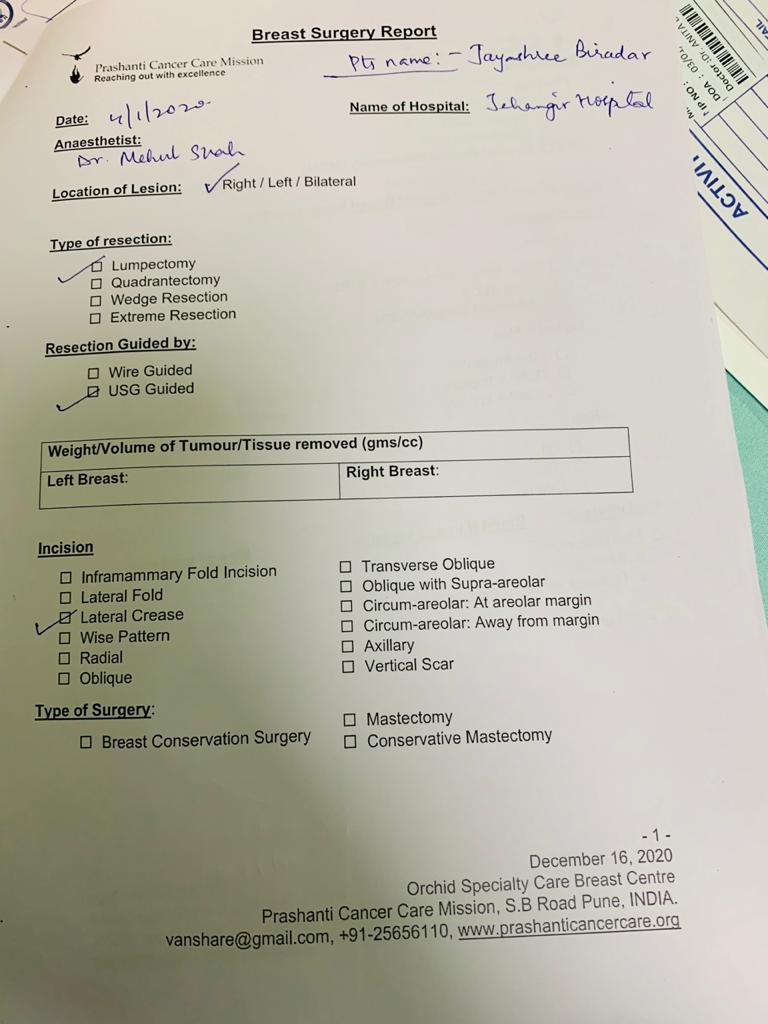 Breast Surgery Report
Prashanti Cancer Care Mission
Reaching out with excellence
Pts name:- Jayashree Biradar
Date: 4/1/2020
Name of Hospital: Jehangir Hospital
Anaesthetist:
Dr. Mehul Shah
Location of Lesion: ✓ Right / Left / Bilateral
Type of resection:
✓ ☐ Lumpectomy
☐ Quadrantectomy
☐ Wedge Resection
☐ Extreme Resection
Resection Guided by:
☐ Wire Guided
✓ ☐ USG Guided
Weight/Volume of Tumour/Tissue removed (gms/cc)
Left Breast: Right Breast:
Incision
☐ Inframammary Fold Incision
☐ Lateral Fold
✓ ☐ Lateral Crease
☐ Wise Pattern
☐ Radial
☐ Oblique
☐ Transverse Oblique
☐ Oblique with Supra-areolar
☐ Circum-areolar: At areolar margin
☐ Circum-areolar: Away from margin
☐ Axillary
☐ Vertical Scar
Type of Surgery:
☐ Breast Conservation Surgery
☐ Mastectomy
☐ Conservative Mastectomy
- 1 -
December 16, 2020
Orchid Specialty Care Breast Centre
Prashanti Cancer Care Mission, S.B Road Pune, INDIA.
vanshare@gmail.com, +91-25656110, www.prashanticancercare.org
IP NO :
DOA : 03/01
Doctor :Dr. ANITA
ACTIVI